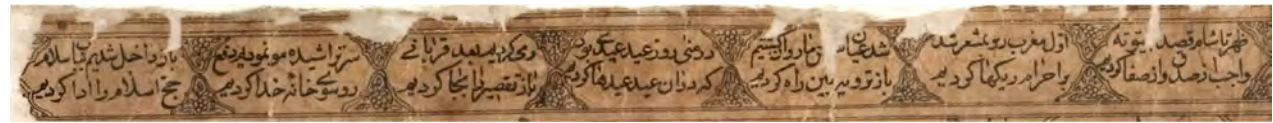 ظهر تا شام قصد بیتوته
واجب از صدق و از صفا کردیم
اول مغرب رو بمشعر شد
احرام ریکها کردیم
شد عیان
باز بین راه کردیم
در منی روز عید عیدی بود
که در ان عید عیدها کردیم
رمی کردیم بعد قربانی
باز تقصیر را بجا کردیم
سر تراشیده مو نموده دفع
رو سوی خانه خدا کردیم
باز داخل شدیم اسلام
حج اسلام را ادا کردیم